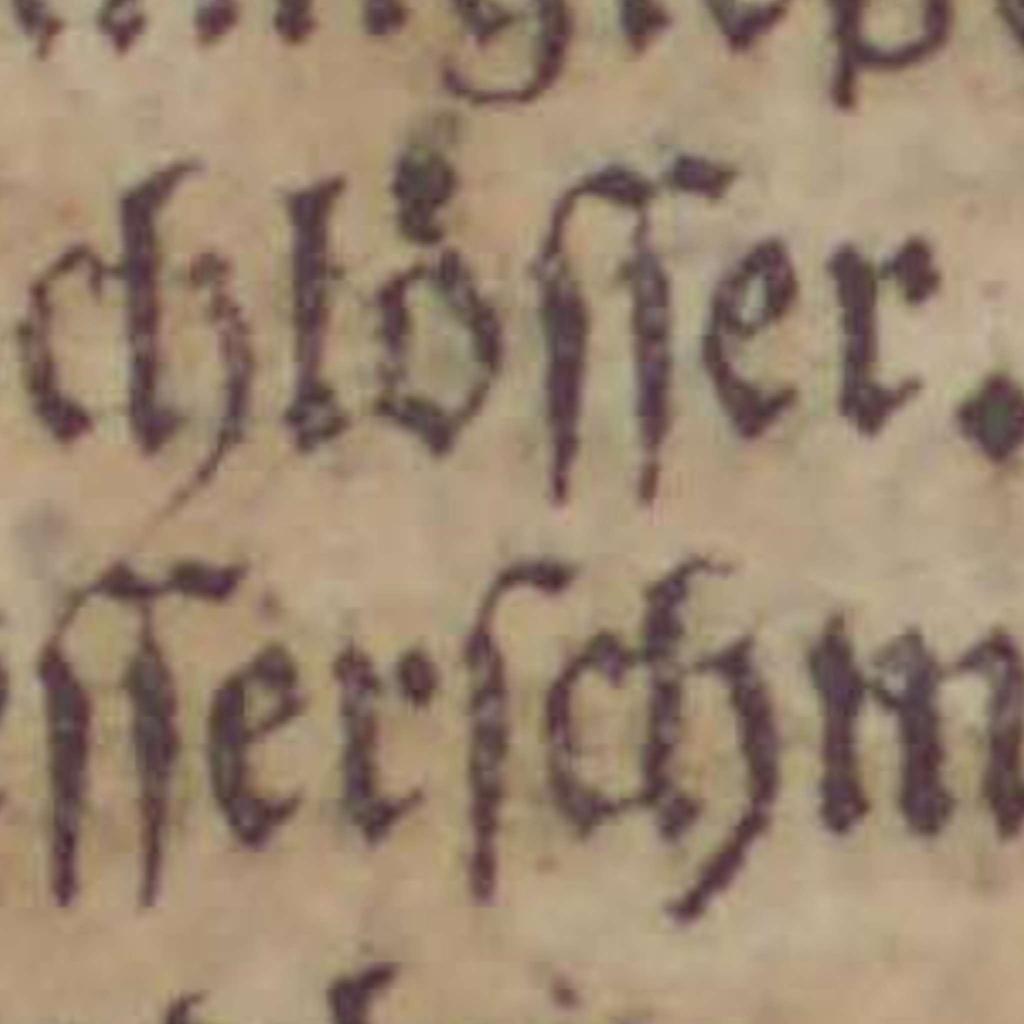 chlöſſer.
ſſerſchm